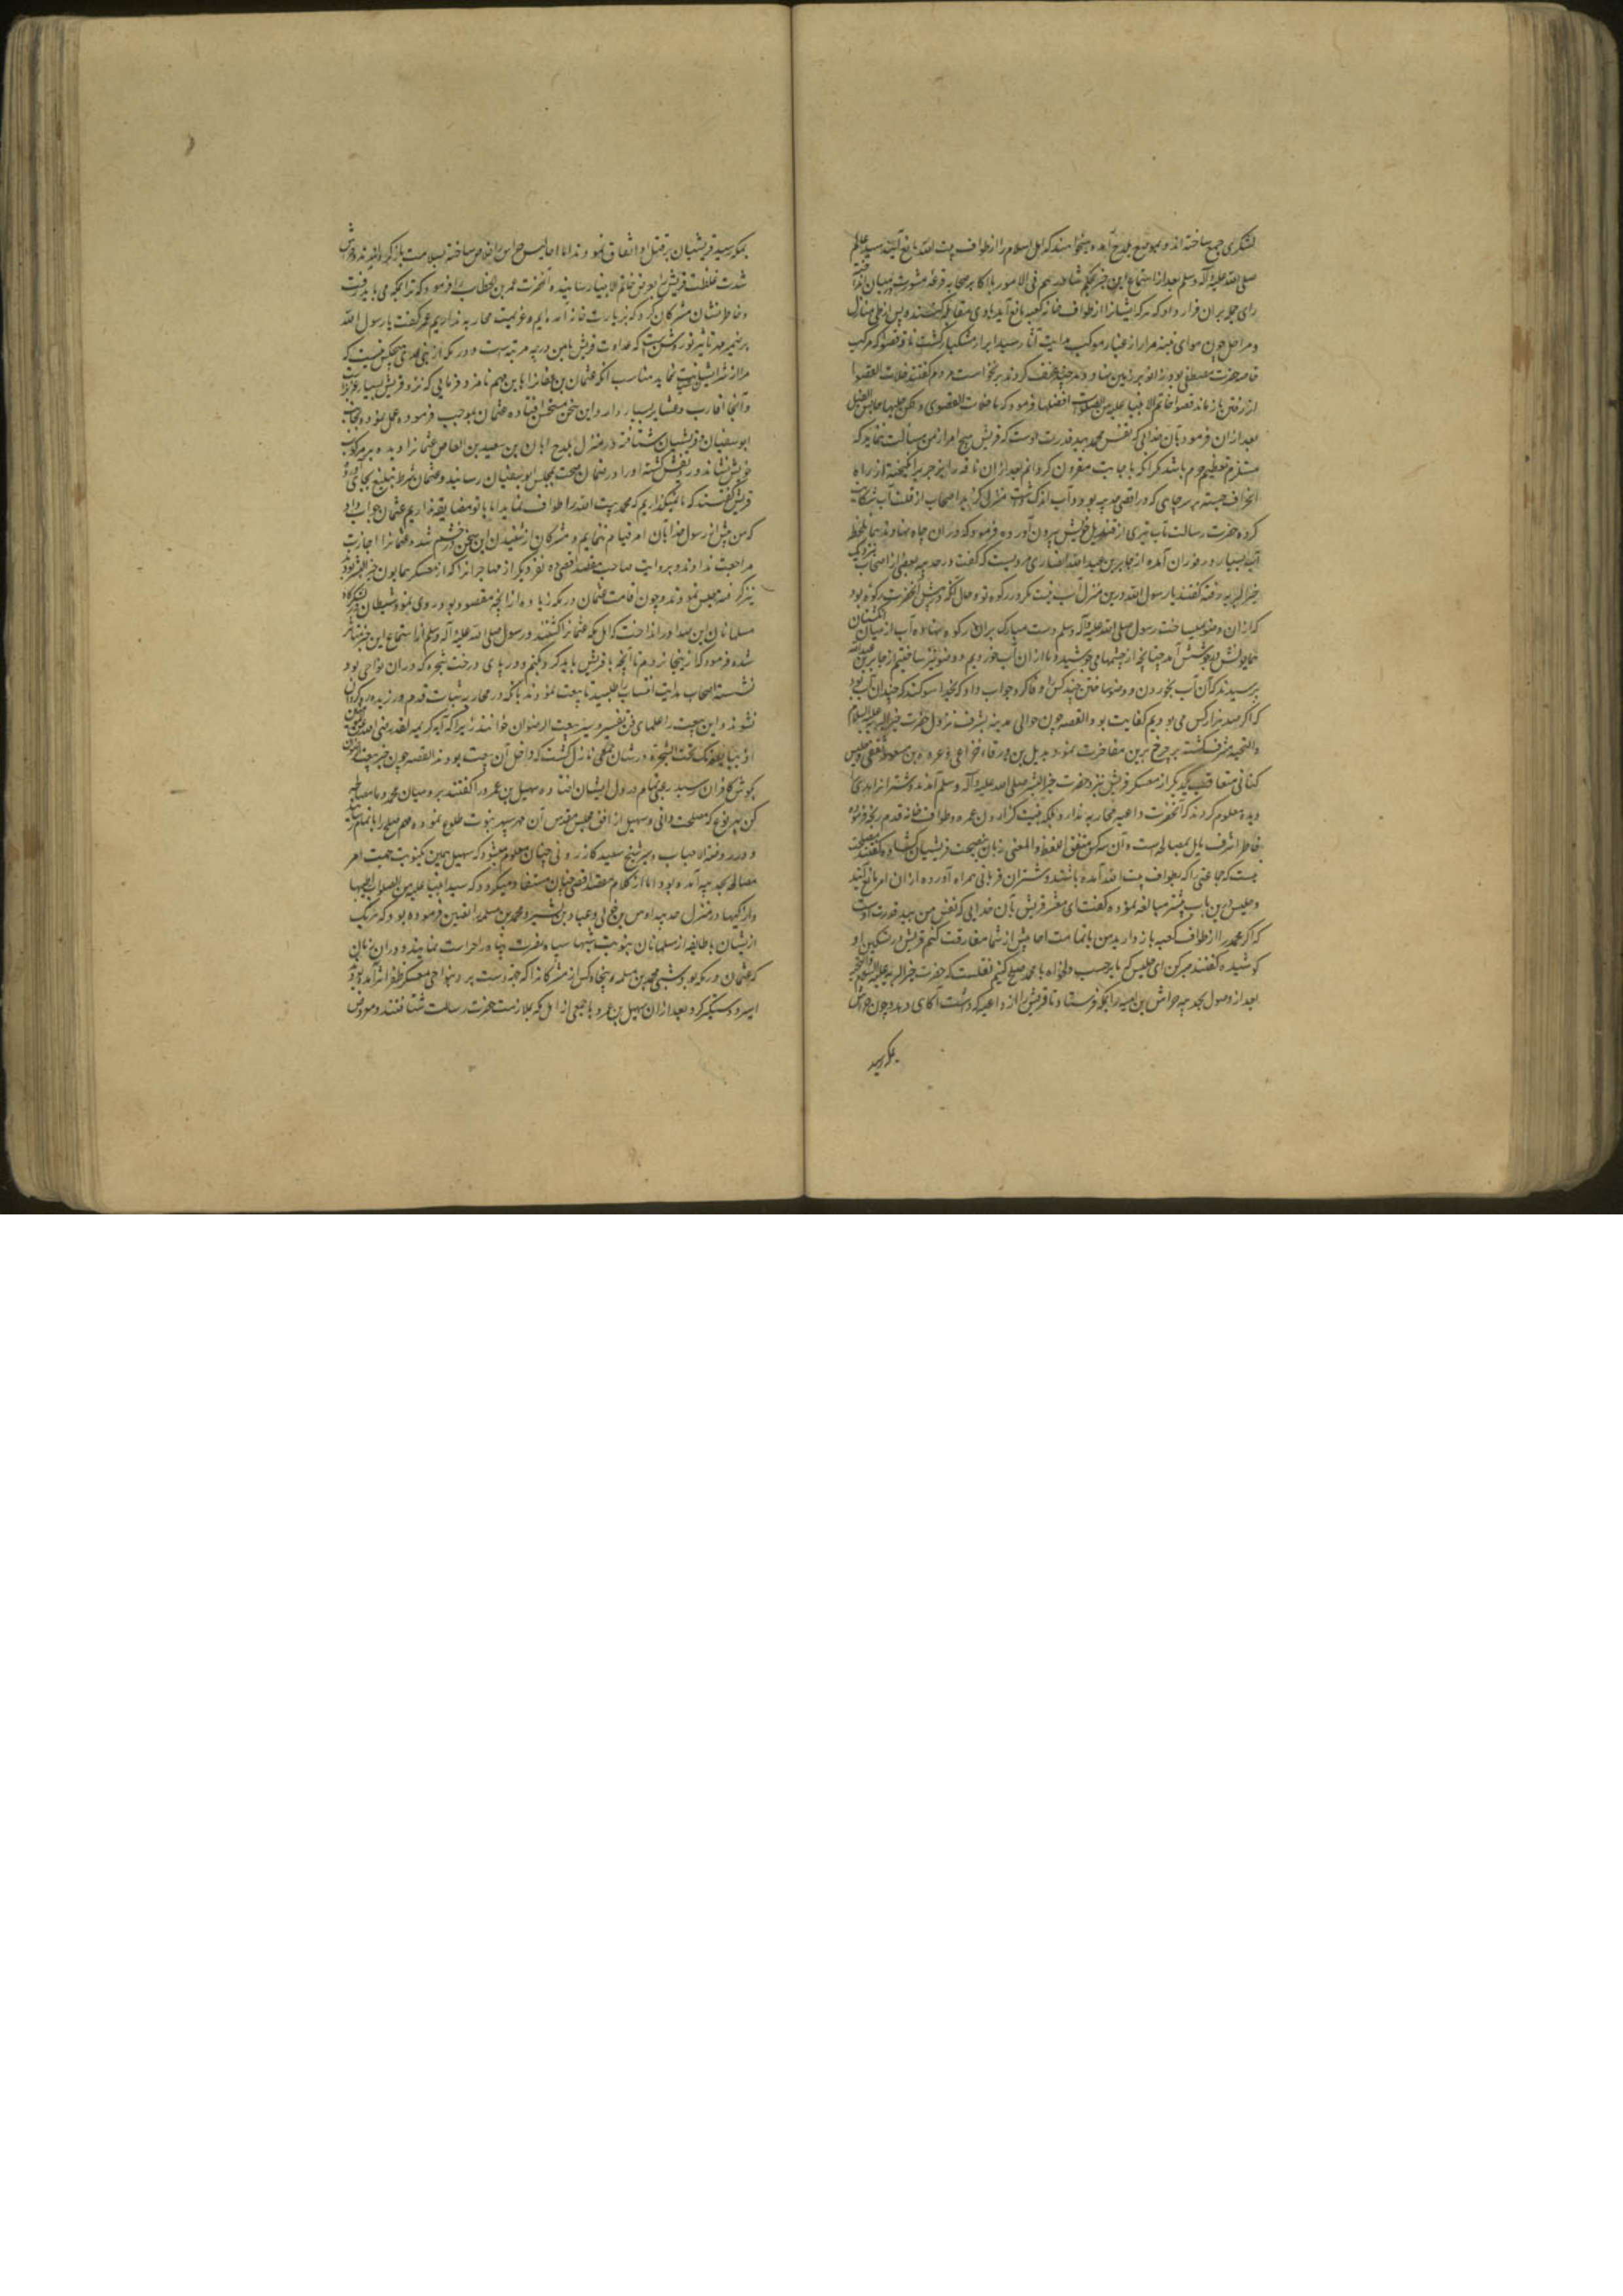 لشکری جمع ساخته اند و بموضع بلدح آمده میخواهند که اهل اسلام را از طواف بیت الله مانع آیند سید عالم
صلی الله علیه و آله وسلم بعد از استماع این خبر بحکم شاورهم فی الامر با اکابر صحابه قرعه مشورت در میان
رای جمله بران قرار داد که هر که ایشانرا از طواف خانه کعبه مانع آید با وی مقاتله کنند پس از طی منازل
و مراحل چون هوای از غبار موکب هدایت آثار سید ابرار مشکبار گشت ناقه قصوا که مرکب
حضرت مصطفی بود زانو بر زمین نهاد و هر چند عنف کردند برنخاست مردم گفتند خلات القصوا
از رفتن باز ماند قصوا خاتم الانبیا علیه من الصلوات افضلها فرمود که ما خلات القصوی و لکن حبسها حابس الفیل
بعد ازان فرمود بآن خدایی که نفس محمد بید قدرت اوست که قریش هیچ امر از من مسألت ننماید که
مستلزم تعظیم حرم باشد مگر آنکه باجابت مقرون گردانم بعد ازان ناقه را بزجر برانگیخته از راه
انحراف جسته بر سر چاهی که در اقصی حدیبیه بود و آب اندک داشت منزل گزید اصحاب از قلت آب شکایت
کرده حضرت رسالت مآب تیری از خویش بیرون آورده فرمود که دران چاه نهادند همان لحظه
آب بسیار در فوران آمده از جابر بن عبد الله انصاری مرویست که گفت در حدیبیه بعضی از اصحاب نزدیک
خیر البریه رفته گفتند یا رسول الله درین منزل آب نیست مگر در رکوه تو و حال آنکه در پیش آنحضرت رکوه بود
که ازان وضو میساخت رسول صلی الله علیه و آله وسلم دست مبارک بران رکوه نهاده آب از میان انگشتان
همایونش در جوشش آمد چنانچه از چشمها می جوشید و ما ازان آب خوردیم و وضو نیز ساختیم از جابر بن عبد الله
پرسیدند که آن آب بخوردن و وضو ساختن چند کس وفا کرد جواب داد که بخدا سوگند که چندان آب بود
که اگر صد هزار کس می بودیم کفایت بود القصه چون حوالی حدیبیه بشرف نزول حضرت خیر البریه علیه السلام
و التحیه مشرف گشته بر چرخ برین مفاخرت نمود بدیل بن ورقاء خزاعی و عروه بن مسعود ثقفی و حلیس
کنانی متعاقب یکدیگر از معسکر قریش نزد حضرت خیر البشر صلی الله علیه و آله وسلم آمدند و شتران هدی را
دیده معلوم کردند که آنحضرت داعیه محاربه ندارد بلکه بنیت گزاردن عمره و طواف خانه قدم رنجه فرموده
خاطر اشرف مایل بمصالحه است و آن هر سه کس متفق اللفظ و المعنی زبان بنصیحت قریشیان گشاده گفتند مصلحت
نیست که جماعتی را که بطواف بیت الله آمده باشند و شتران قربانی همراه آورده ازان امر مانع آیند
و حلیس درین باب بیشتر مبالغه نموده گفت ای معشر قریش بآن خدایی که نفس من بید قدرت اوست
که اگر محمد را از طواف کعبه باز دارید من با تمامت احابیش از شما مفارقت کنم قریش در تسکین او
کوشیده گفتند صبر کن ای حلیس که ما بر حسب دلخواه با محمد صلح کنیم نقلست که حضرت خیر البریه علیه السلام و التحیه
بعد از وصول بحدیبیه خراش بن امیه را بمکه فرستاد تا قریش را از داعیه که داشت آگاهی دهد و چون خراش
بمکه رسید
بمکه رسید قریشیان بر قتل او اتفاق نمودند اما احابیش خراش را خلاص ساخته بسلامت باز گردانیدند و خراش
شدت غلظت قریش بعرض خاتم الانبیا رسانید آنحضرت عمر بن الخطاب را فرمود که ترا بمکه می باید رفت
و خاطر نشان مشرکان کرد که بزیارت خانه آمده ایم و عزیمت محاربه نداریم عمر گفت یا رسول الله
بر ضمیر مهر تاثیر نور روشن است که عداوت قریش با من در چه مرتبه است و در مکه از بنی عدی هیچکس نیست که
مرا از شر ایشان حمایت نماید مناسب آنکه عثمان بن عفان را باین مهم نامزد فرمایی که نزد قریش بسیار عزیزست
و آنجا اقارب و عشایر بسیار دارد این سخن مستحسن افتاده عثمان بموجب فرموده عمل نموده بجانب
ابو سفیان و قریشیان شتافته در منزل بلدح ابان بن سعید بن العاص عثمانرا دیده بر مرکوب
خویش نشاند و ردیفش گشته او را در ضمان صحت بمجلس ابو سفیان رسانید و عثمان شرط تبلیغ بجای آورد
قریش گفتند که ما نمیگذاریم که محمد بیت الله را طواف نماید اما با تو مضایقه نداریم عثمان جواب داد
که من پیش از رسول خدا بآن امر قیام ننمایم و مشرکان از شنیدن این سخن در خشم شده عثمانرا اجازت
مراجعت ندادند و بروایت صاحب مقصد اقصی ده نفر دیگر از مهاجرانرا که از معسکر همایون خیر البشر بودند
نیز گرفته حبس نمودند و چون اقامت عثمان در مکه زیاده از آنچه مقصود بود روی نمود شیطان در لشکرگاه
مسلمانان این صدا در انداخت که اهل مکه عثمانرا کشتند و رسول صلی الله علیه و آله وسلم از استماع این خبر متاثر
شده فرمود که از اینجا نروم تا آنچه با قریش باید کرد بکنم و در پای درخت شجره که دران نواحی بود
نشسته اصحاب هدایت انتساب را طلبید تا بیعت نمودند بآنکه در محاربه ثبات قدم ورزیده رو گردان
نشوند و این بیعت را علمای فن تفسیر و سیر بیعت الرضوان خوانند زیرا که آیه کریمه لقد رضی الله عن المؤمنین
اذ یبایعونک تحت الشجرة در شان جمعی نازل گشت که داخل آن بیعت بودند القصه چون خبر بیعت الرضوان
بگوش کافران رسید رعبی تمام در دل ایشان افتاده سهیل بن عمرو را گفتند برو میان محمد و ما مصالحه
کن بهر نوع که مصلحت دانی و سهیل از افق مجلس مقدس آن مهر سپهر نبوت طلوع نموده مهم صلح را باتمام رسانید
و در روضة الاحباب و سیر شیخ سعید کازرونی چنان معلوم میشود که سهیل همین یک نوبت جهت امر
مصالحه بحدیبیه آمده بود اما از کلام مقصد اقصی چنان مستفاد میگردد که سید انبیا علیه من الصلوات اطیبها
و ازکیها در منزل حدیبیه اوس بن خولی و عباد بن بشر و محمد بن مسلمه را تعیین فرموده بود که هر یک
ازیشان با طایفه از مسلمانان بنوبت شبها سپاه نصرت پناه را حراست نمایند و دران زمان
که عثمان در مکه بود شبی محمد بن مسلمه پنجاه کس از مشرکانرا که جهت دست برد بنواحی معسکر ظفر اثر آمده بودند
اسیر و دستگیر کرد بعد ازان سهیل بن عمرو با جمعی از اهل مکه بملازمت حضرت رسالت شتافتند و معروض